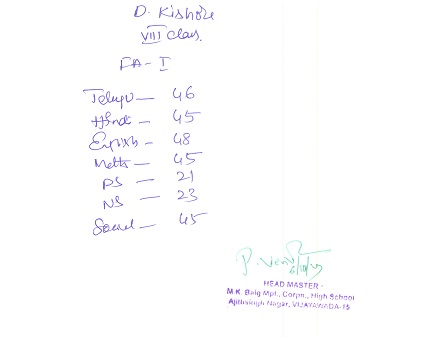 D. Kishore
VIII class.
FA - I
Telugu — 46
Hindi — 45
English — 48
Maths — 45
PS — 21
NS — 23
Social — 45
HEAD MASTER
M.K. Baig Mpl., Corpn., High School
Ajithsingh Nagar, VIJAYAWADA-15